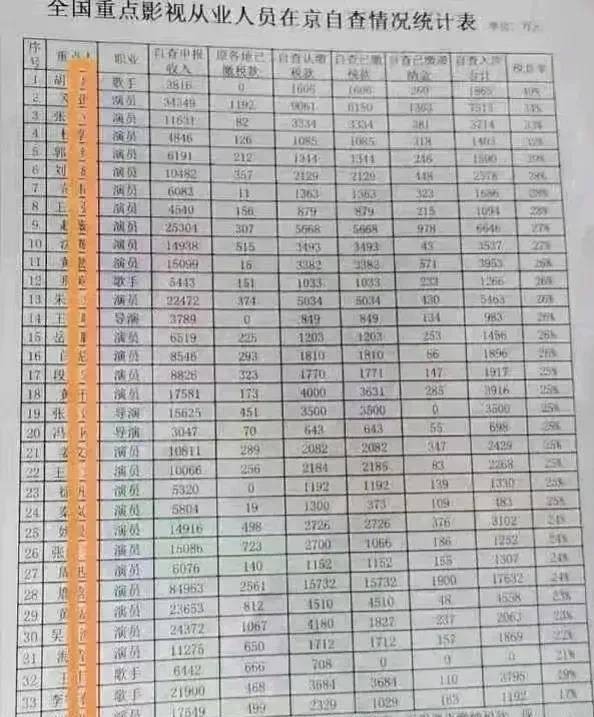 全国重点影视从业人员在京自查情况统计表 单位：万元
序号 重点人 职业 自查申报收入 原各地已缴税款 自查认缴税款 自查已缴税款 自查已缴滞纳金 自查入库合计 税负率
1 胡 歌手 3816 0 1606 1606 260 1865 49%
2 邓 演员 34349 1192 9061 6150 1363 7513 34%
3 张 演员 11631 82 3334 3334 381 3714 33%
4 杜 演员 4846 126 1085 1085 318 1403 32%
5 郭 演员 6191 212 1344 1344 246 1590 29%
6 刘 演员 10482 357 2129 2129 448 2578 28%
7 演员 6083 11 1363 1363 323 1686 28%
8 王 演员 4540 156 879 879 215 1094 28%
9 赵 演员 25304 307 5668 5668 978 6646 27%
10 演员 14938 515 3493 3493 43 3537 27%
11 黄 演员 15099 16 3382 3382 571 3953 26%
12 歌手 5443 151 1033 1033 233 1266 26%
13 朱 演员 22472 374 5034 5034 430 5463 26%
14 王 导演 3789 0 849 849 134 983 26%
15 岳 演员 6519 225 1203 1203 253 1456 26%
16 白 演员 8546 293 1810 1810 86 1896 26%
17 段 演员 8826 323 1770 1771 147 1917 25%
18 黄 演员 17581 173 4000 3631 285 3916 25%
19 张 导演 15625 451 3500 3500 0 3500 25%
20 冯 导演 3047 70 643 643 55 698 25%
21 姜 演员 10811 289 2082 2082 347 2429 25%
22 王 演员 10066 256 2184 2185 83 2268 25%
23 演员 5320 0 1192 1192 139 1330 25%
24 秦 演员 5804 19 1300 373 109 483 25%
25 姚 演员 14916 498 2726 2726 376 3102 24%
26 张 演员 15086 723 2700 1066 186 1252 24%
27 周 演员 6076 140 1152 1152 155 1307 24%
28 演员 84963 2561 15732 15732 1900 17632 24%
29 黄 演员 23653 812 4510 4510 48 4558 23%
30 吴 演员 24372 1067 4180 1827 237 2063 23%
31 演员 11275 650 1712 1712 157 1869 22%
32 王 歌手 6442 666 708 0 0 0 21%
33 李 歌手 21900 468 3684 3684 110 3795 19%
演员 17549 499 2329 1029 163 1192 17%